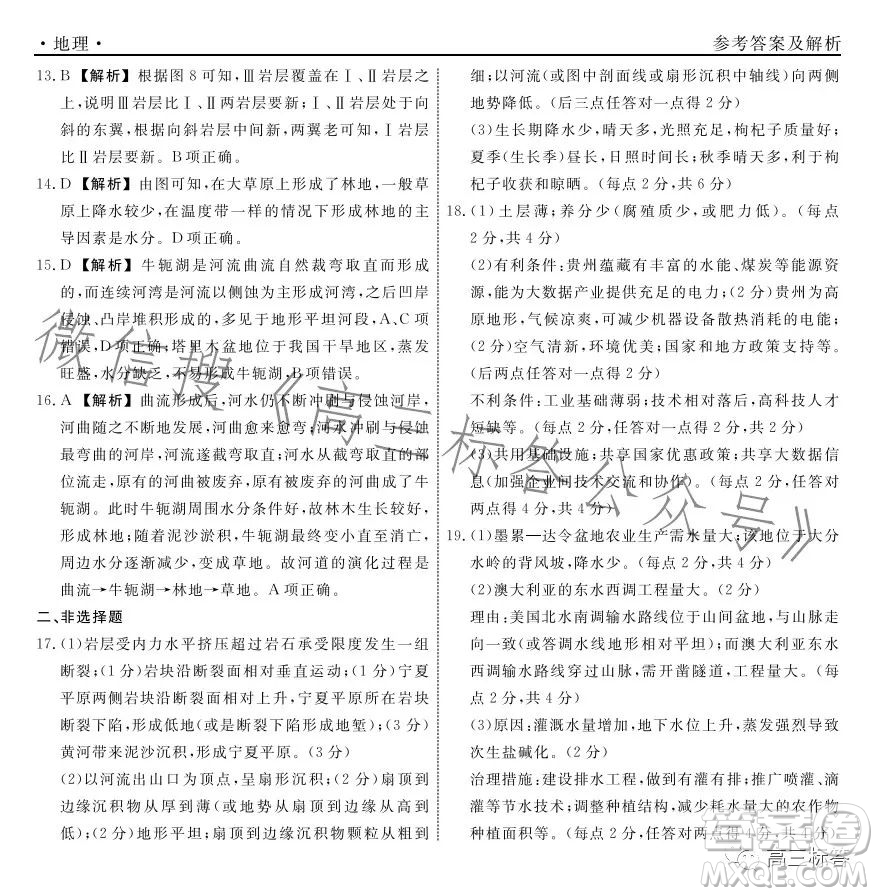 ·地理·
参考答案及解析
13. B 【解析】根据图8可知，Ⅲ岩层覆盖在Ⅰ、Ⅱ岩层之
上，说明Ⅲ岩层比Ⅰ、Ⅱ两岩层要新；Ⅰ岩层处于向
斜的东翼，根据向斜岩层中间新，两翼老可知，Ⅰ岩层
比Ⅱ岩层要新。B项正确。
14. D 【解析】由图可知，在大草原上形成了林地，一般草
原上降水较少，在温度带一样的情况下形成林地的主
导因素是水分。D项正确。
15. D 【解析】牛轭湖是河流曲流自然裁弯取直而形成
的，而连续河湾是河流以侧蚀为主形成河湾，之后凹岸
侵蚀、凸岸堆积形成的，多见于地形平坦河段，A、C项
错误，D项正确；塔里木盆地位于我国干旱地区，蒸发
旺盛，水分缺乏，不易形成牛轭湖，B项错误。
16. A 【解析】曲流形成后，河水仍不断冲刷与侵蚀河岸，
河曲随之不断地发展，河曲愈来愈弯；河水冲刷与侵蚀
最弯曲的河岸，河流遂截弯取直，河水从截直的部
位流走，原有的河曲被废弃，原有被废弃的河曲成为牛轭
湖。此时牛轭湖周围水分条件好，故林木生长较好，
形成林地；随着泥沙淤积，牛轭湖最终变小直至消亡，
周边水分逐渐减少，变成草地。故河道的演化过程是
曲流→牛轭湖→林地→草地。A项正确。
二、非选择题
17. (1)岩层受内力水平挤压超过岩石承受限度发生一组
断裂；(1分)岩块沿断裂面相对垂直运动；(1分)宁夏
平原两侧岩块沿断裂面相对上升，宁夏平原所在岩块
断裂下陷，形成低地(或是断裂下陷形成地堑)；(3分)
黄河带来泥沙沉积，形成宁夏平原。(1分)
(2)以河流出山口为顶点，呈扇形沉积；(2分)扇顶到
边缘沉积物从厚到薄(或地势从扇顶到边缘从高到
低)；(2分)地形平坦；扇顶到边缘沉积物颗粒从粗到
细；以河流(或图中剖面线或扇形沉积中轴线)向两侧
地势降低。(后三点任答对一点得2分)
(3)生长期降水少，晴天多，光照充足，枸杞子质量好；
夏季(生长季)昼长，日照时间长；秋季晴天多，利于枸
杞子收获和晾晒。(每点2分，共6分)
18. (1)土层薄；养分少(腐殖质少，或肥力低)。(每点
2分，共4分)
(2)有利条件：贵州蕴藏有丰富的水能、煤炭等能源资
源，能为大数据产业提供充足的电力；(2分)贵州为高
原地形，气候凉爽，可减少机器设备散热消耗的电能；
(2分)空气清新，环境优美；国家政策支持。
(后两点任答一点得2分)
不利条件：工业基础薄弱；技术相对落后，高科技人才
短缺等。(每点2分，任答一点得2分)
(3)共用基础设施；共享国家优惠政策；共享大数据信
息(加强企业间技术交流和协作)。(每点2分，任答对
两点得4分，共4分)
19. (1)墨累—达令盆地农业生产需水量大；该地位于大分
水岭的背风坡，降水少。(每点2分，共4分)
(2)澳大利亚的东水西调工程量大。(2分)
理由：美国北水南调输水路线位于山间盆地，与山脉走
向一致(或答调水线地形相对平坦)；而澳大利亚东水
西调输水路线穿过山脉，需开凿隧道，工程量大。(每
点2分，共4分)
(3)原因：灌溉水量增加，地下水位上升，蒸发强烈，出
次生盐碱化。(2分)
治理措施：建设排水工程，做到有灌有排；推广喷灌、滴
灌等节水技术；调整种植结构，减少耗水量大的农作物
种植面积等。(每点2分，任答对两点得4分，共4分)
微信搜《高三标答公众号》
答案圈
MXQE.COM
高三标答